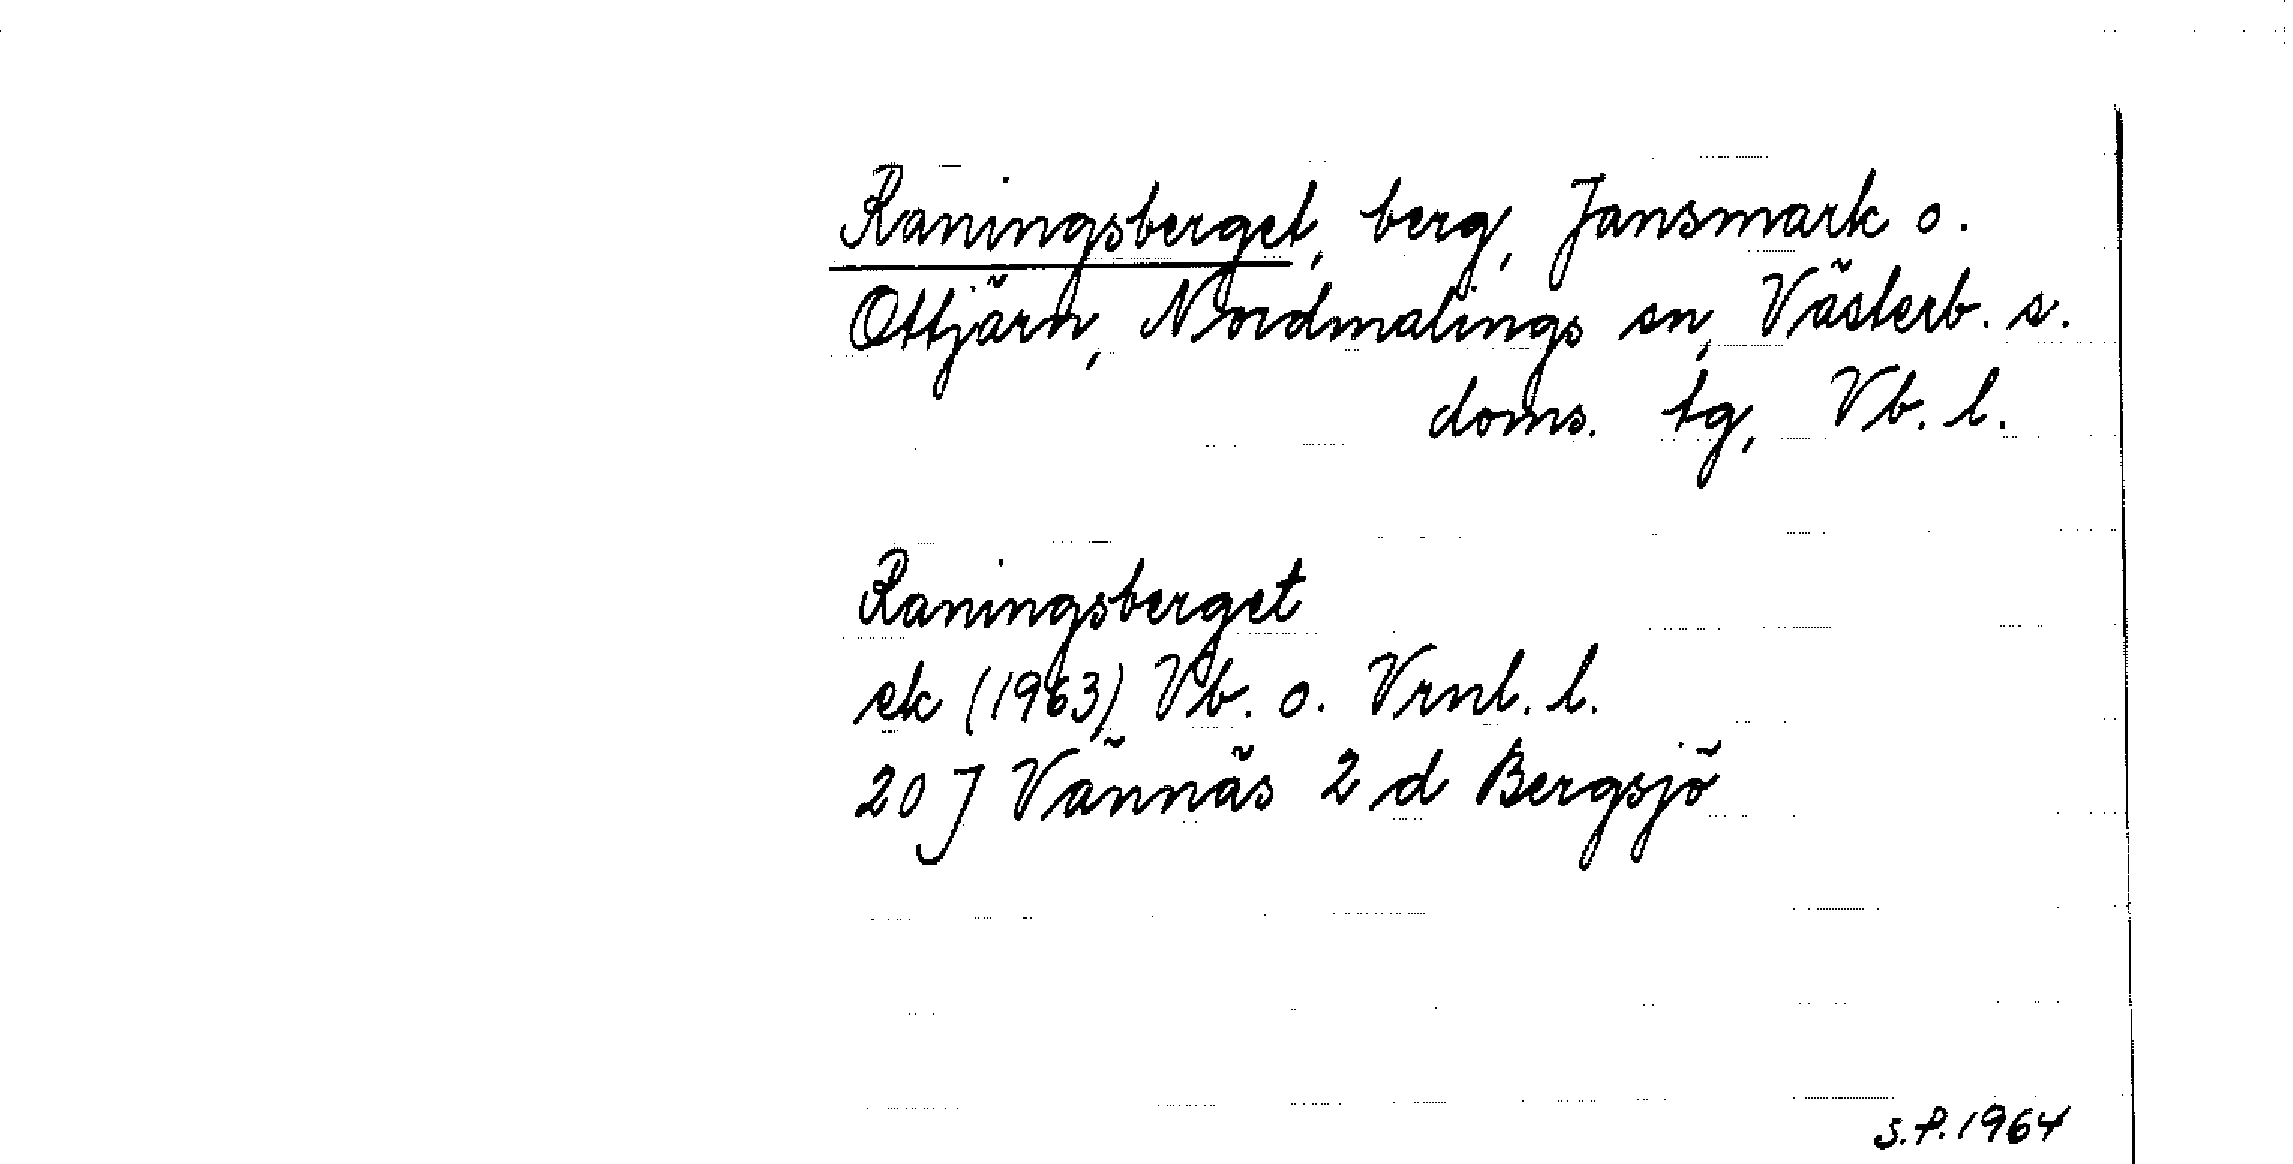 Raningsberget, berg, Jansmark o.
Ottjärn, Nordmalings sn, Västerb. s.
doms. tg, Vb. l.
Raningsberget
ek (1963) Vb. o. Vrnl. l.
20 J Vännäs 2 d Bergsjö
S.P. 1964